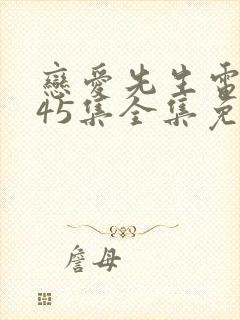 戀愛先生電
45集全集免
詹母